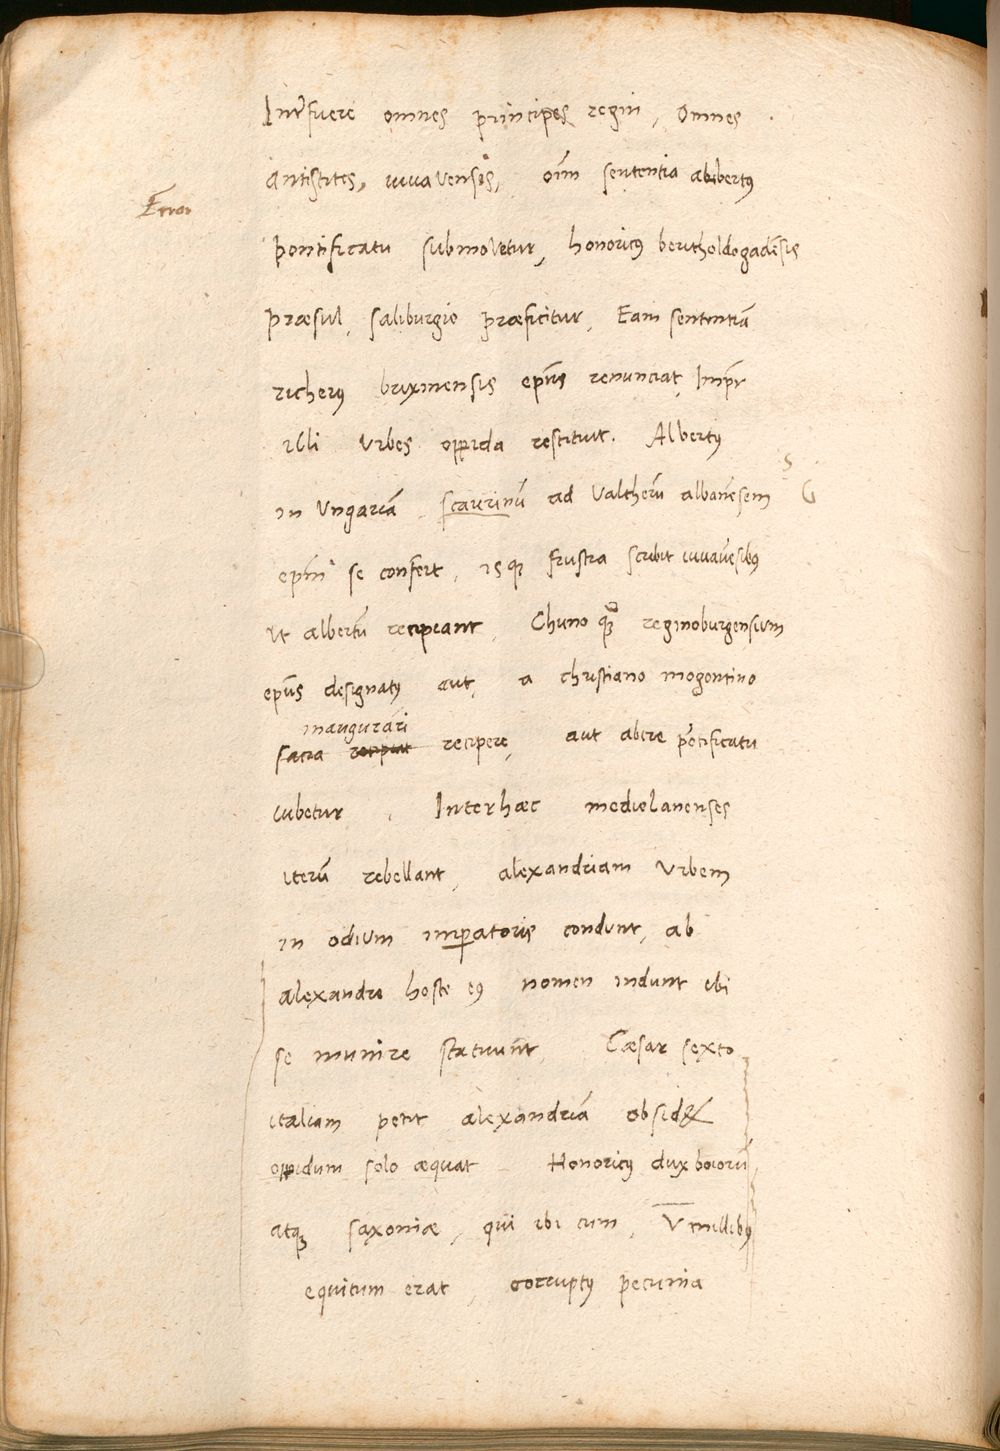 Inʳfuere omnes principes regni, Omnes
Error
Antistites, iuuavenses, oīm sententia albertꝰ
pontificatu submovetur, honoricꝰ beritholdogadēsis
præsul, saliburgio præficitur, Eam sententiā
richerꝰ brixinensis epūs renunciat, Impr̄
illi Urbes oppida restituit. Albertꝰ
in Ungariā scaurinū ad Valtherū albanēsem
epm̄ se confert, isqꝫ frustra scribit iuuavēsibꝰ
ut albertū recipiant, Chuno qꝫ reginoburgensium
epūs designatꝰ aut, a christiano mogontino
inaugurari
sacra recipiat recipere, aut abire pōtificatu
iubetur, Interhæc mediolanenses
iterū rebellant, alexandriam Urbem
in odium imperatoris condunt, ab
alexandro hoste eꝰ nomen indunt ibi
se munire statuunt, Cæsar sexto
italiam petit alexandriā obsidet
oppidum solo æquat Honoricꝰ dux boiorū,
atqꝫ saxoniæ, qui ibi cum, V̄ millibꝰ
equitum erat, corruptꝰ pecunia